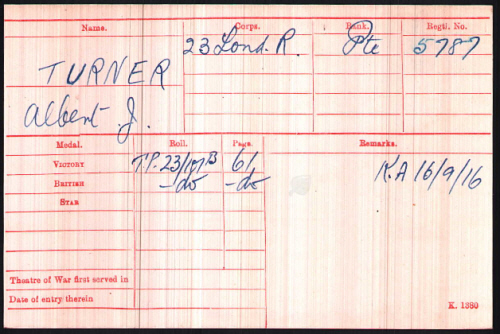 Name. Corps. Rank. Regtl. No.
TURNER 23 Lond. R. Pte 5787
Albert J.
Medal. Roll. Page. Remarks.
VICTORY T.P. 23/107B 61 K.A 16/9/16
BRITISH -do -do
STAR
Theatre of War first served in
Date of entry therein
K. 1380